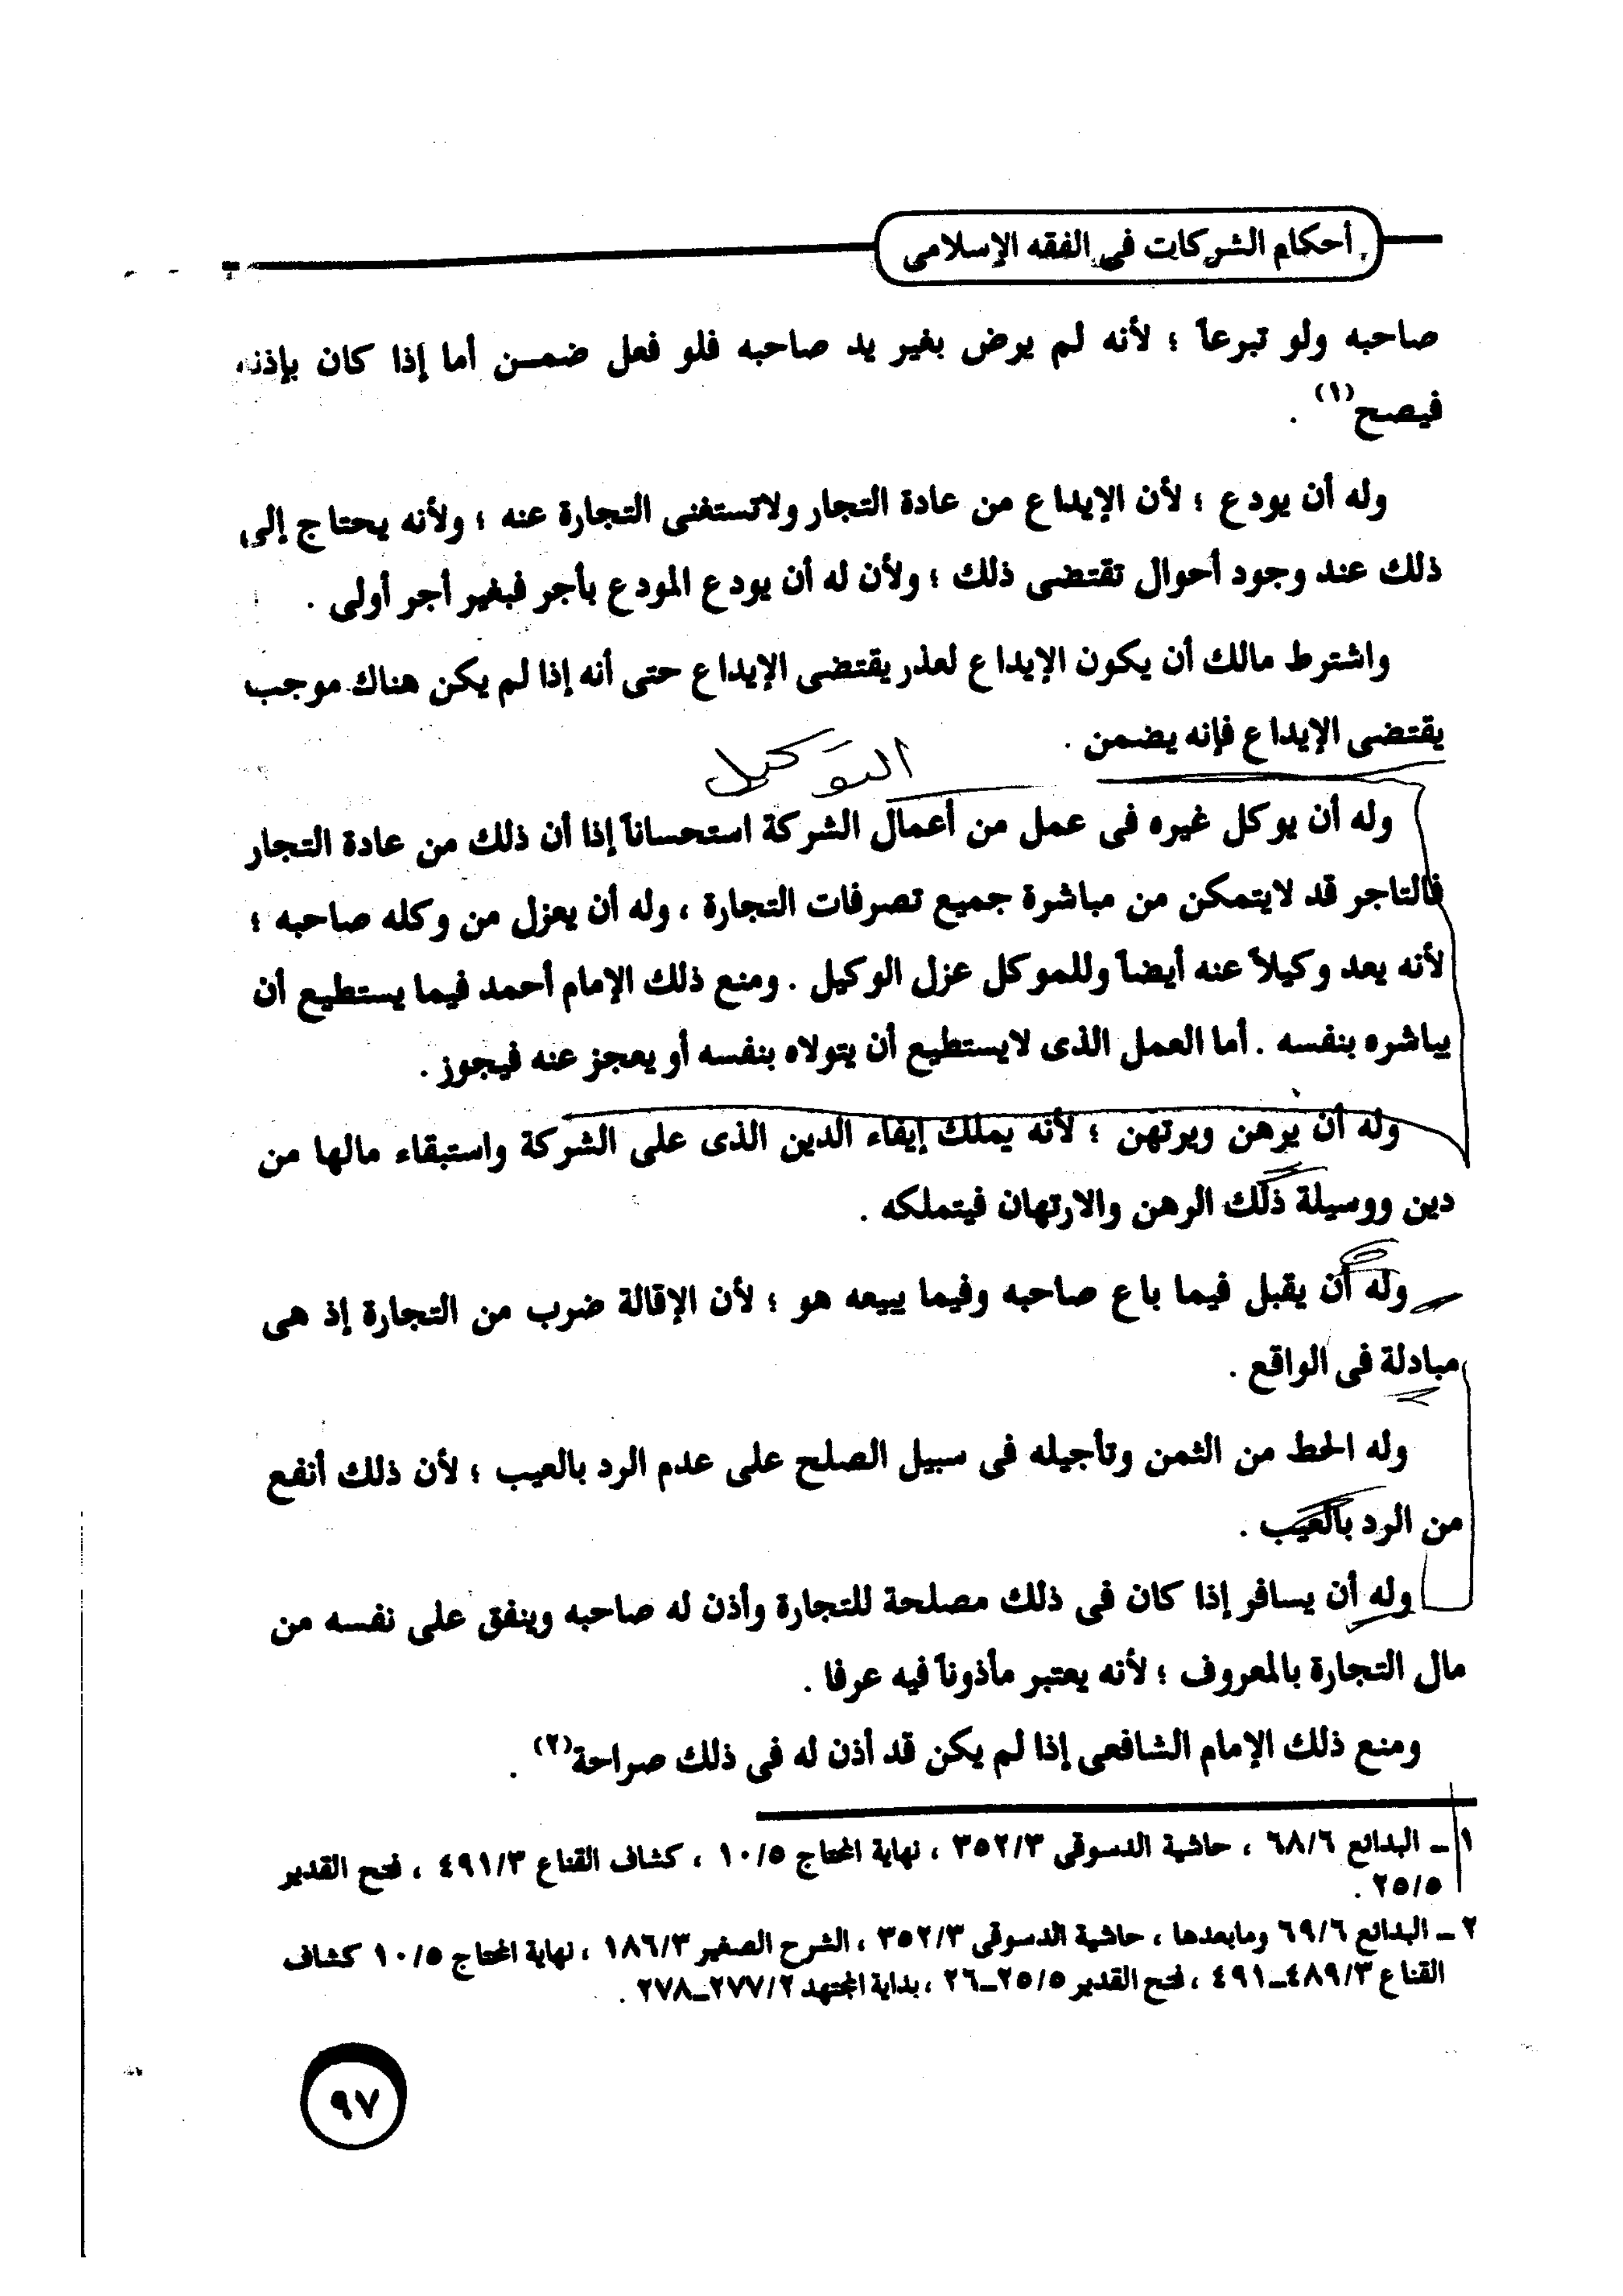 أحكام الشركات فى الفقه الإسلامى
صاحبه ولو تبرعاً ؛ لأنه لم يرض بغير يد صاحبه فلو فعل ضمـن أما إذا كان بإذنه
فيصح(١) .
وله أن يودع ؛ لأن الإيداع من عادة التجار ولاتستغنى التجارة عنه ؛ ولأنه يحتاج إلى
ذلك عند وجود أحوال تقتضى ذلك ؛ ولأن له أن يودع المودع بأجر فبغير أجر أولى .
واشترط مالك أن يكون الإيداع لعذر يقتضى الإيداع حتى أنه إذا لم يكن هناك موجب
يقتضى الإيداع فإنه يضمن .
التوكيل
وله أن يوكل غيره فى عمل من أعمال الشركة استحساناً إذا أن ذلك من عادة التجار
فالتاجر قد لايتمكن من مباشرة جميع تصرفات التجارة ، وله أن يعزل من وكله صاحبه ؛
لأنه يعد وكيلاً عنه أيضاً وللموكل عزل الوكيل . ومنع ذلك الإمام أحمد فيما يستطيع أن
يباشره بنفسه . أما العمل الذى لايستطيع أن يتولاه بنفسه أو يعجز عنه فيجوز .
وله أن يرهن ويرتهن ؛ لأنه يملك إيفاء الدين الذى على الشركة واستبقاء مالها من
دين ووسيلة ذلك الرهن والارتهان فيتملكه .
وله أن يقبل فيما باع صاحبه وفيما يبيعه هو ؛ لأن الإقالة ضرب من التجارة إذ هى
مبادلة فى الواقع .
وله الحط من الثمن وتأجيله فى سبيل الصلح على عدم الرد بالعيب ؛ لأن ذلك أنفع
من الرد بالعيب .
وله أن يسافر إذا كان فى ذلك مصلحة للتجارة وأذن له صاحبه وينفق على نفسه من
مال التجارة بالمعروف ؛ لأنه يعتبر مأذوناً فيه عرفا .
ومنع ذلك الإمام الشافعى إذا لم يكن قد أذن له فى ذلك صراحة(٢) .
١ ـ البدائع ٦٨/٦ ، حاشية الدسوقى ٣٥٢/٣ ، نهاية المحتاج ١٠/٥ ، كشاف القناع ٤٩١/٣ ، فتح القدير
٢٥/٥ .
٢ ـ البدائع ٦٩/٦ ومابعدها ، حاشية الدسوقى ٣٥٢/٣ ، الشرح الصغير ١٨٦/٣ ، نهاية المحتاج ١٠/٥ كشاف
القناع ٤٨٩/٣ـ٤٩١ ، فتح القدير ٢٥/٥ـ٢٦ ، بداية المجتهد ٢٧٧/٢ـ٢٧٨ .
٩٧